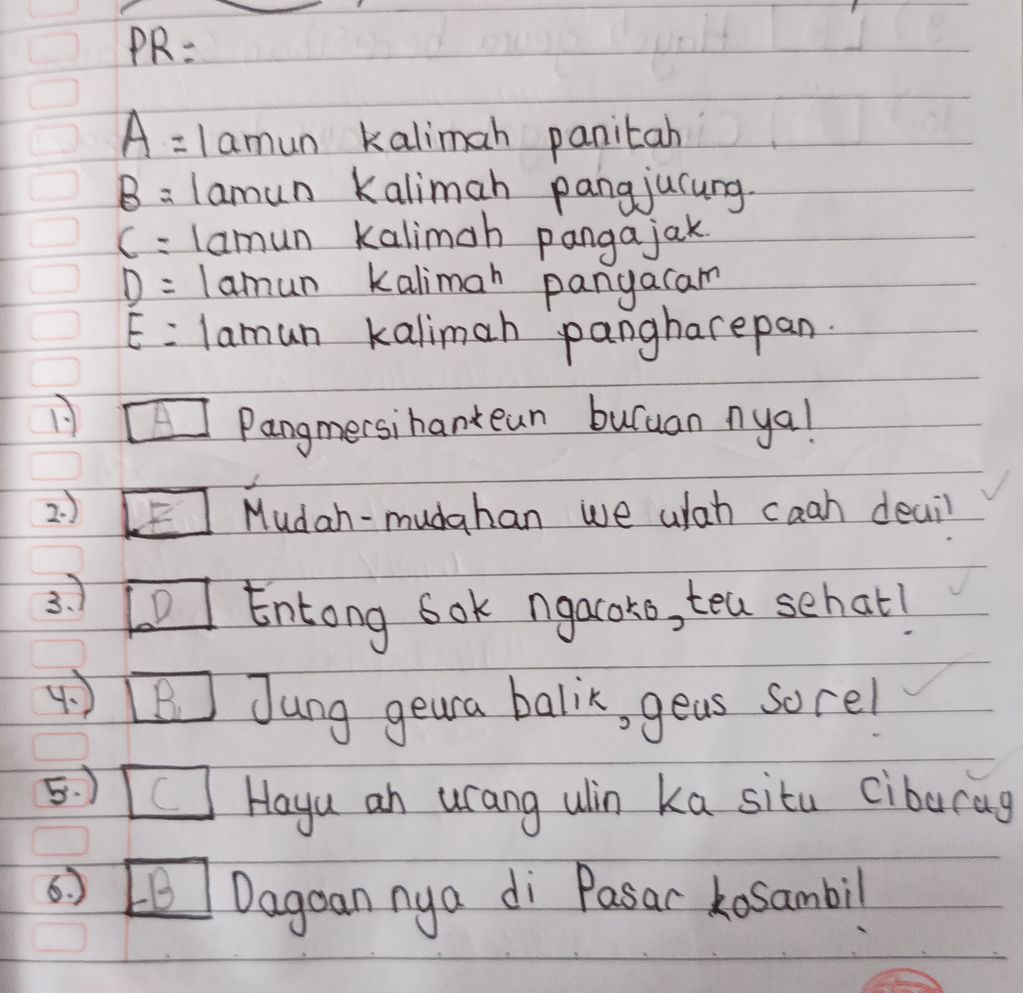 PR=
A = lamun kalimah panitah
B = lamun kalimah pangjurung.
C = lamun kalimah pangajak.
D = lamun kalimah panyaram
E = lamun kalimah pangharepan.
1.) A Pangmersihankeun buruan nya!
2.) E Mudah-mudahan we ulah caah deui!
3.) D Entong sok ngaroko, teu sehat!
4.) B Jung geura balik, geus sore!
5.) C Hayu ah urang ulin ka situ Ciburug
6.) B Dagoan nya di Pasar kosambi!